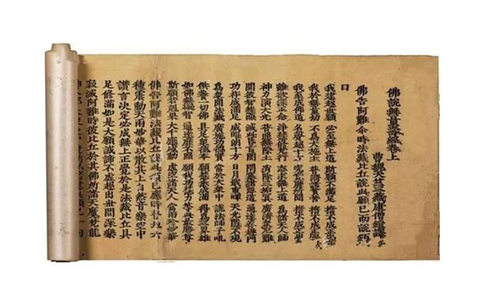 佛說無量壽經卷上
曹魏天竺三藏康僧鎧譯
佛告阿難爾時法藏比丘說此願已而說頌
曰
我建超世願 必至無上道 斯願不滿足 誓不成正覺
我於無量劫 不為大施主 普濟諸貧苦 誓不成正覺
我至成佛道 名聲超十方 究竟靡所聞 誓不成正覺
離欲深正念 淨慧修梵行 志求無上道 為諸天人師
神力演大光 普照無際土 消除三垢冥 廣濟眾厄難
開彼智慧眼 滅此昏盲闇 閉塞諸惡道 通達善趣門
功祚成滿足 威曜朗十方 日月戢重暉 天光隱不現
為眾開法藏 廣施功德寶 常於大眾中 說法師子吼
供養一切佛 具足眾德本 願慧悉成滿 得為三界雄
如佛無礙智 通達靡不照 願我功慧力 等此最勝尊
斯願若剋果 大千應感動 虛空諸天人 當雨珍妙華
佛告阿難法藏比丘說此頌已應時普地六
種震動天雨妙華以散其上自然音樂空中
讚言決定必成無上正覺於是法藏比丘具
足修滿如是大願誠諦不虛超出世間深樂
寂滅阿難時彼比丘於其佛所諸天魔梵龍